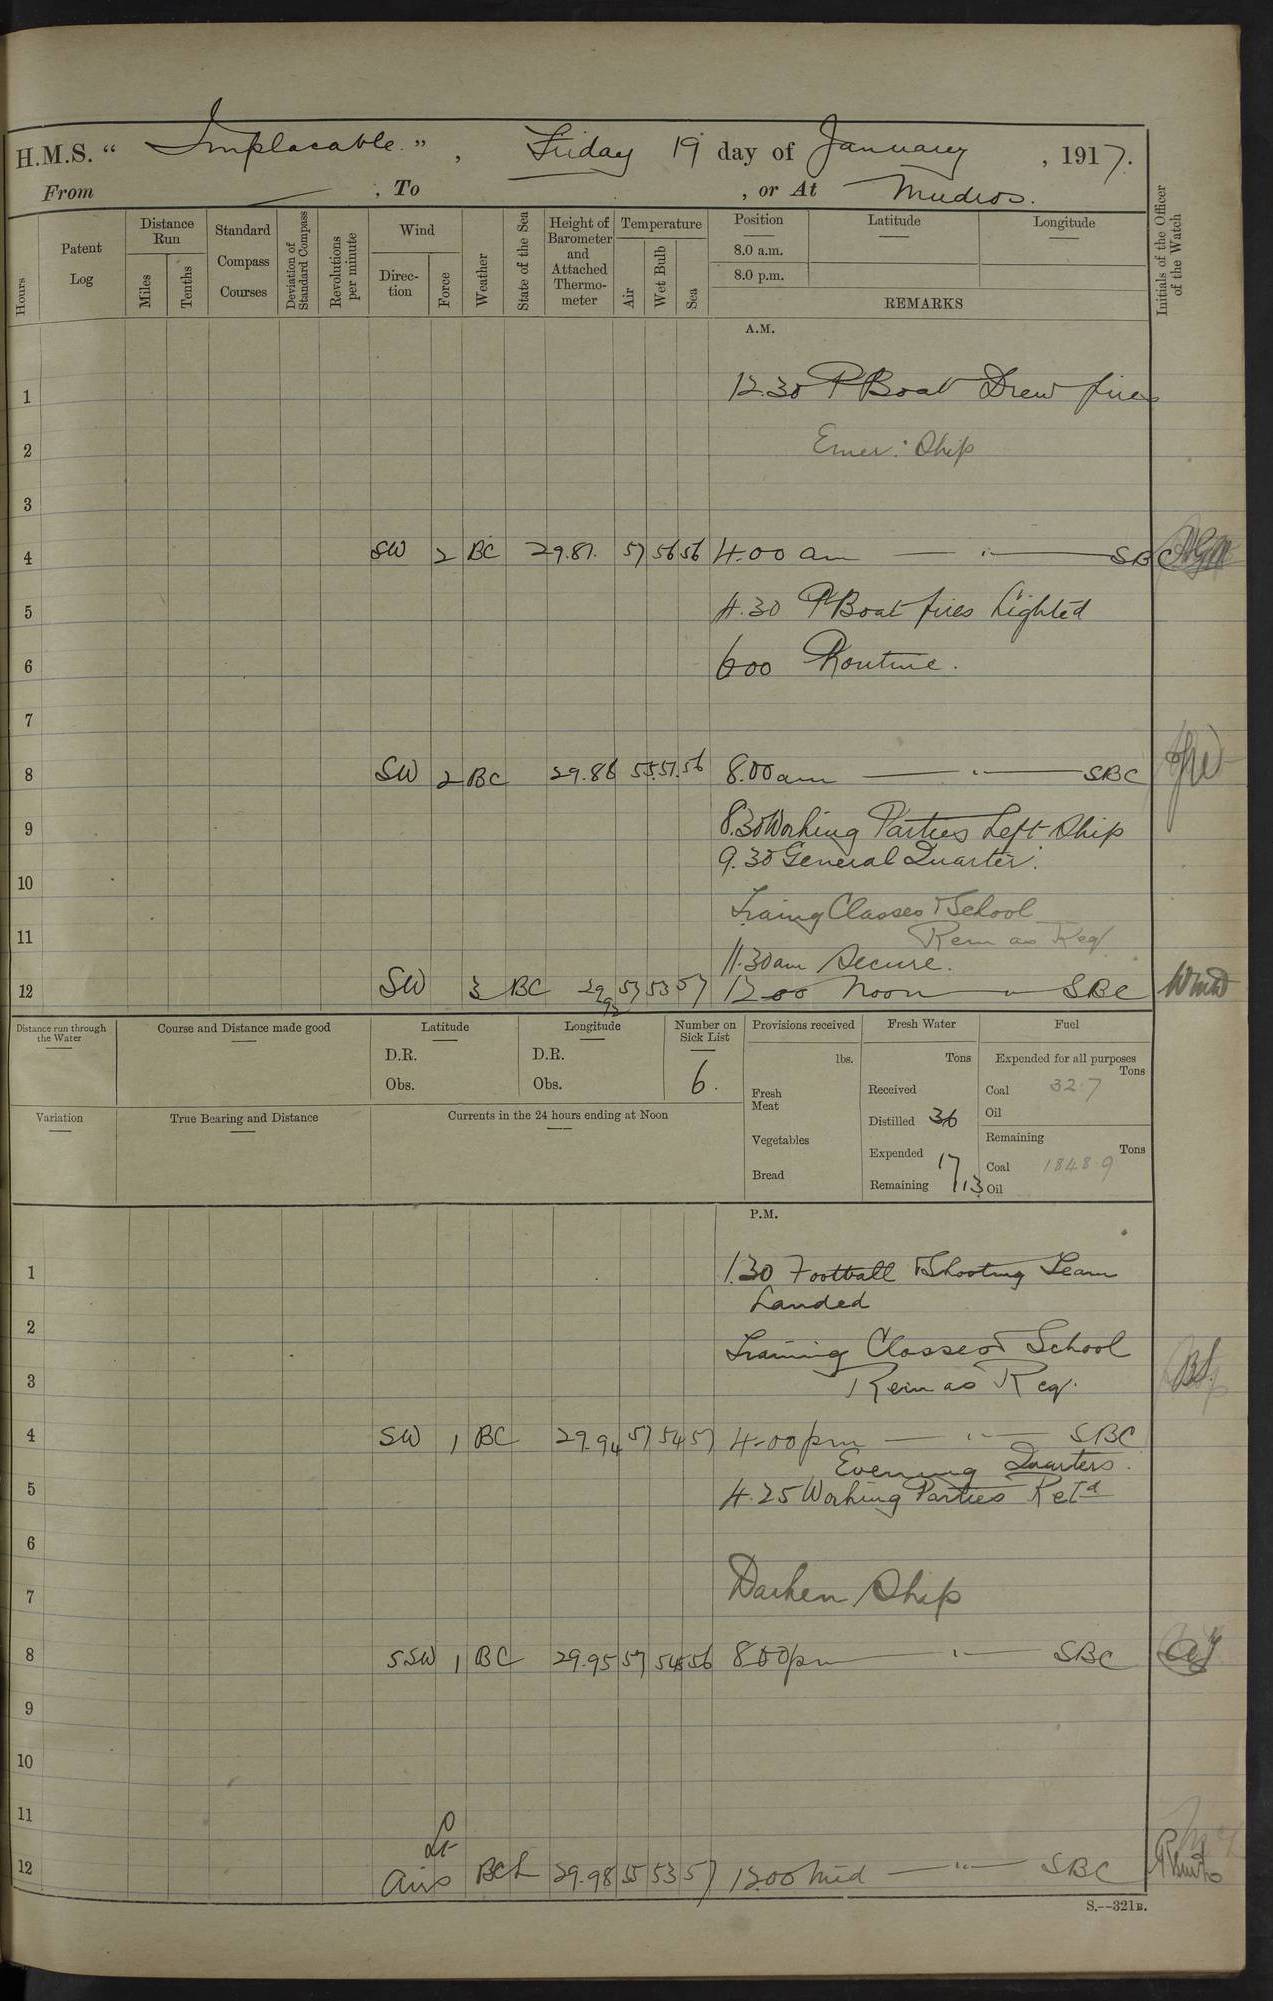 H.M.S. “ Implacable ” , Friday 19 day of January , 1917.
From , To , or At Mudros.
Hours
Patent Log
Distance Run
Miles
Tenths
Standard Compass Courses
Deviation of Standard Compass
Revolutions per minute
Wind
Direction
Force
Weather
State of the Sea
Height of Barometer and Attached Thermometer
Temperature
Air
Wet Bulb
Sea
Position
8.0 a.m.
8.0 p.m.
Latitude
Longitude
REMARKS
Initials of the Officer of the Watch
A.M.
1 12.30 P Boat Drew fires
2 Emer: Ship
3
4 SW 2 BC 29.81. 57 56 56 4.00 am — " — SBC
5 4.30 P Boat fires Lighted
6 600 Routine.
7
8 SW 2 BC 29.86 55. 51. 56 8.00 am — " — SBC
9 8.30 Working Parties Left Ship
9.30 General Quarter.
10
Traing Classes & School
11 Rem as Req
11.30 am Secure.
12 SW 3 BC 29.93 57 53 57 12 00 Noon — " — SBC
Distance run through the Water
Course and Distance made good
Latitude
D.R.
Obs.
Longitude
D.R.
Obs.
Number on Sick List
6.
Provisions received
lbs.
Fresh Meat
Vegetables
Bread
Fresh Water
Tons
Received
Distilled 36
Expended 17
Remaining 113
Fuel
Expended for all purposes
Tons
Coal 32.7
Oil
Remaining
Tons
Coal 1848.9
Oil
Variation
True Bearing and Distance
Currents in the 24 hours ending at Noon
P.M.
1 1.30 Football & Shooting Team
Landed
2 Training Classes & School
3 Rem as Req.
4 SW 1 BC 29.94 57 54 57 4.00 pm — " — SBC
Evening Quarters.
5 4.25 Working Parties Retd
6
7 Darken Ship
8 SSW 1 BC 29.95 57 54 56 8.00 pm — " — SBC
9
10
11
Lt
12 Airs BC 29.98 55 53 57 12.00 Mid — " — SBC
S.--321B.